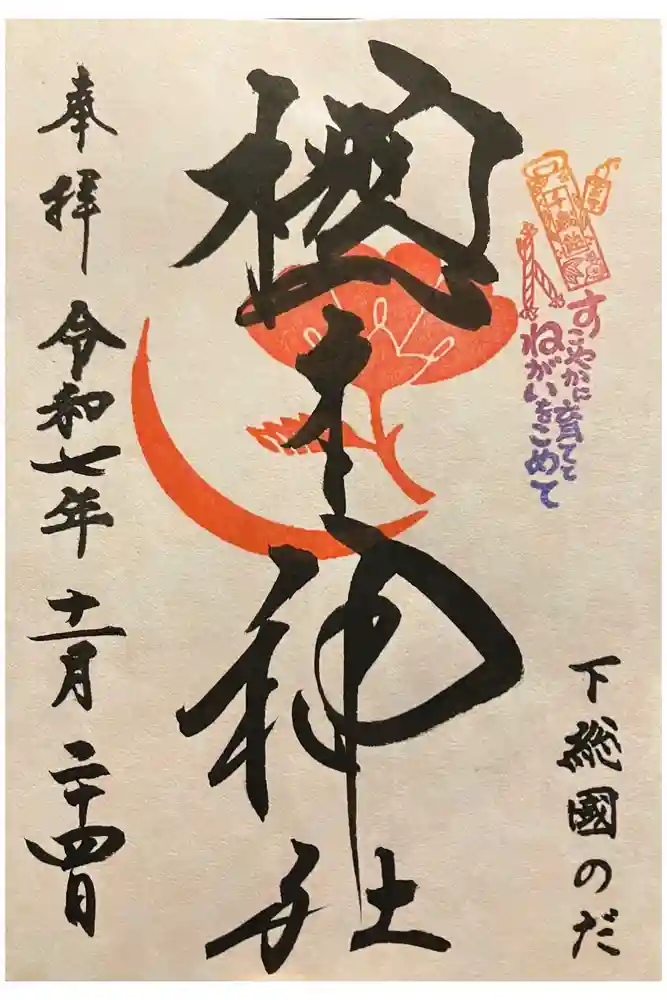 すこやかに育てて
ねがいをこめて
下総國のだ
櫻木神社
奉拝 令和七年 十一月 二十四日